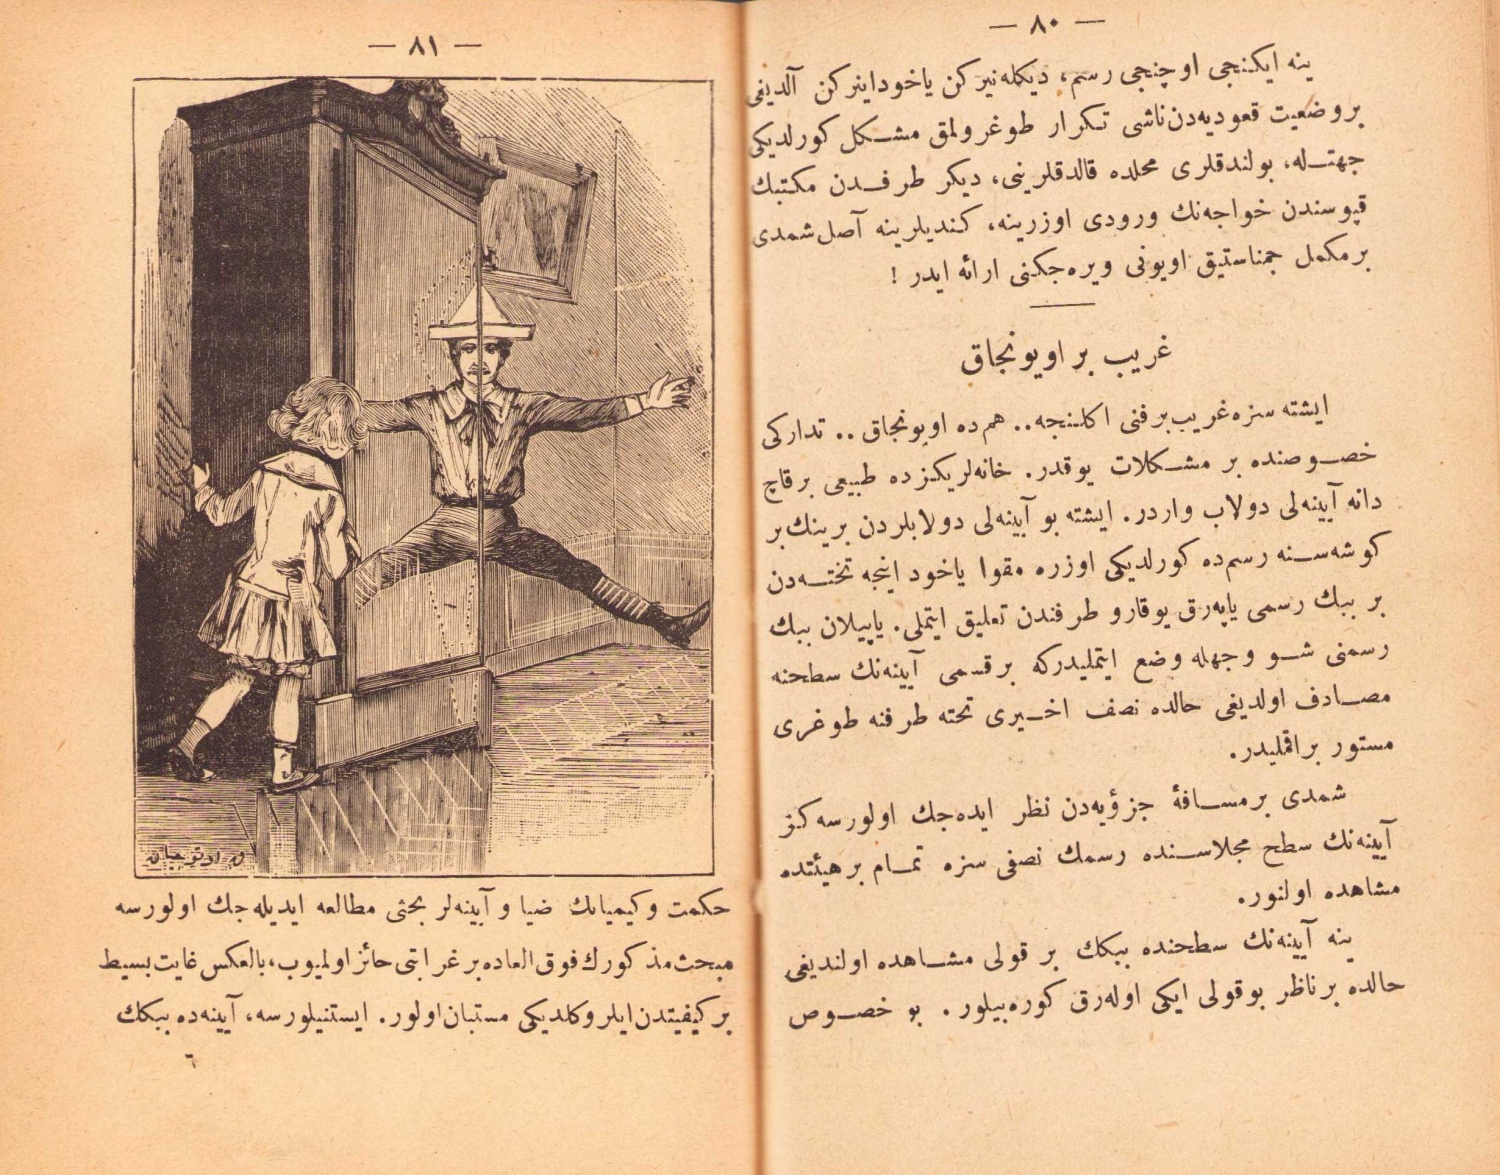 — ٨٠ —
ینه ایکنجی اوچنجی رسم، دیکله‌نیرکن یاخود اینرکن آلدیغی
بر وضعیت قعودیه‌دن ناشی تکرار طوغرولمق مشکل کورلدیکی
جهتله، بولندقلری محلده قالدقلرینی، دیکر طرفدن مکتبك
قپوسندن خواجه‌نك ورودی اوزرینه، کندیلرینه آصل شمدی
بر مکمل جمناستیق اویونی ویره‌جکنی ارائه ایدر !
غریب بر اویونجاق
ایشته سزه غریب بر فنی اکلنجه.. هم ده اویونجاق.. تدارکی
خصوصنده بر مشکلات یوقدر. خانه‌لریکزده طبیعی بر قاچ
دانه آیینه‌لی دولاب واردر. ایشته بو آیینه‌لی دولابلردن برینك بر
کوشه‌سنه رسم‌ده کورلدیکی اوزره مقوا یاخود اینجه تخته‌دن
بر ببك رسمی یاپه‌رق یوقارو طرفندن تعلیق ایتملی. یاپیلان ببك
رسمنی شو وجهله وضع ایتملیدرکه بر قسمی آیینه‌نك سطحنه
مصادف اولدیغی حالده نصف اخیری تخته طرفنه طوغری
مستور براقملیدر.
شمدی بر مسافهٔ جزؤیه‌دن نظر ایده‌جك اولورسه‌کز
آیینه‌نك سطح مجلاسنده رسمك نصفی سزه تمام بر هیئتده
مشاهده اولنور.
ینه آیینه‌نك سطحنده ببکك بر قولی مشاهده اولندیغی
حالده بر ناظر بو قولی ایکی اوله‌رق کوره‌بیلور. بو خصوص
— ٨١ —
حکمت و کیمیانك ضیا و آیینه‌لر بحثی مطالعه ایدیله‌جك اولورسه
مبحث مذکورك فوق العاده بر غرابتی حائز اولمیوب، بالعکس غایت بسیط
بر کیفیتدن ایلرو کلدیکی مستبان اولور. ایستنیلورسه، آیینه‌ده ببکك
٦